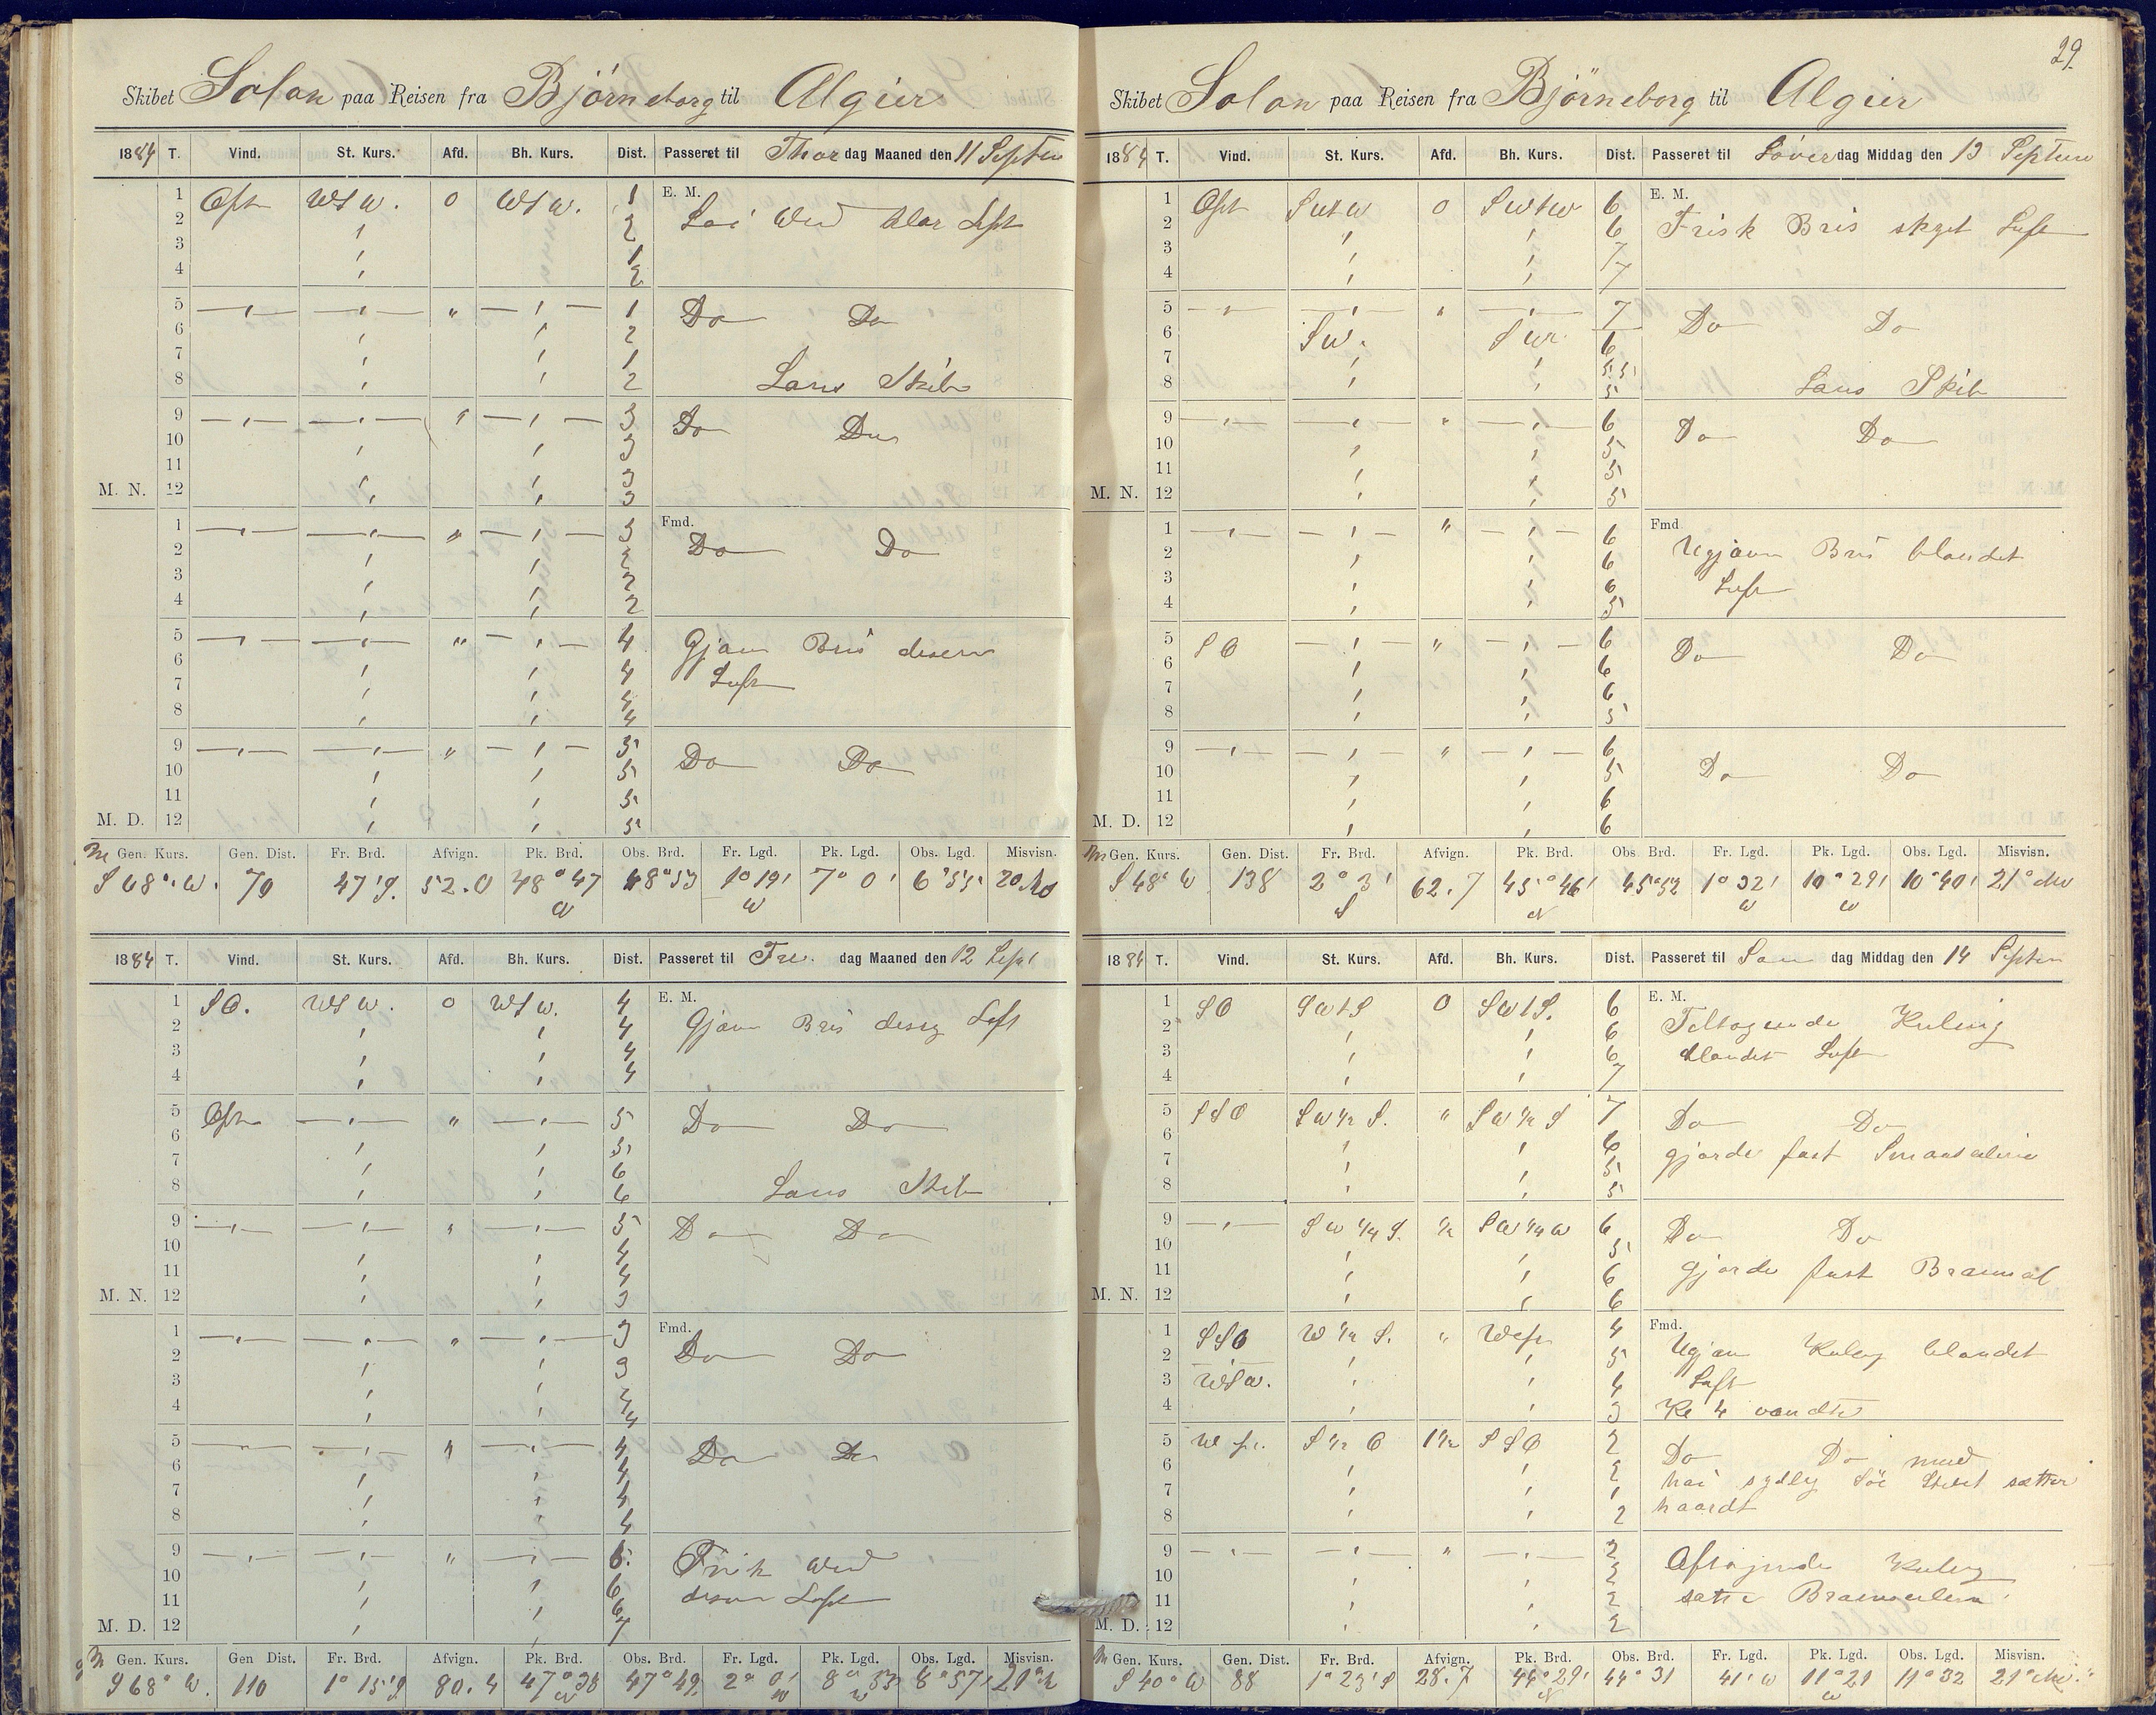 Skibet Solon paa Reisen fra Björneborg til Algier
1884 T. Vind. St. Kurs. Afd. Bh. Kurs. Dist. Passeret til Thors dag Maaned den 11 Septem
1 Ost WSW. 0 WSW. 1 E. M.
2 ' 2 Klar Luft
3 ' 1
4 ' 2
5 — " — — " — " — " — 1 Do Do
6 ' ' 2
7 ' ' 1
8 ' ' 2 Lans Skib
9 — " — — " — " — " — 3 Do Do
10 ' ' 3
11 ' ' 3
M. N. 12 ' ' 3
1 — " — — " — " — " — 3 Fmd. Do Do
2 ' ' 2
3 ' ' 2
4 ' ' 2
5 — " — — " — " — " — 4 Gjævn Bris
6 ' ' 4 Luft
7 ' ' 4
8 ' ' 4
9 — " — — " — " — " — 5 Do Do
10 ' ' 5
11 ' ' 5
M. D. 12 ' ' 5
Gen. Kurs. Gen. Dist. Fr. Brd. Afvign. Pk. Brd. Obs. Brd. Fr. Lgd. Pk. Lgd. Obs. Lgd. Misvisn.
S 68° W. 70 47' S. 52.0 48° 47 N 48° 53 1° 19' W 7° 0' 6° 55' 20
1884 T. Vind. St. Kurs. Afd. Bh. Kurs. Dist. Passeret til Fre. dag Maaned den 12 Sept
1 SO. WSW. 0 WSW. 4 E. M.
2 ' ' 4 Gjævn Bris Luft
3 ' ' 4
4 ' ' 4
5 Ost — " — " — " — 5 Do Do
6 ' ' 5
7 ' ' 6
8 ' ' 6 Lans Skib
9 — " — — " — " — " — 5 Do Do
10 ' ' 4
11 ' ' 4
M. N. 12 ' ' 3
1 — " — — " — " — " — 3 Fmd. Do Do
2 ' ' 3
3 ' ' 4
4 ' ' 4
5 — " — — " — " — " — 4 Do Do
6 ' ' 4
7 ' ' 4
8 ' ' 4
9 — " — — " — " — " — 6. Frisk
10 ' ' 6 Luft
11 ' ' 6
M. D. 12 ' ' 7
Gen. Kurs. Gen Dist. Fr. Brd. Afvign. Pk. Brd. Obs. Brd. Fr. Lgd. Pk. Lgd. Obs. Lgd. Misvisn.
S 68° W. 110 1° 15' S 80.4 47° 38 N 47° 49' 2° 0' W 8° 53' W 8° 57' 21°
29.
Skibet Solon paa Reisen fra Björneborg til Algier
1884 T. Vind. St. Kurs. Afd. Bh. Kurs. Dist. Passeret til Löver dag Middag den 13 Septem
1 Ost SWtW 0 SWtW 6 E. M.
2 ' ' 6 Frisk Bris skyet Luft
3 ' ' 7
4 ' ' 7
5 — " — — " — " — " — 7 Do Do
6 SW. SW 6
7 ' ' 5.5
8 ' ' 5 Lans Skib
9 — " — — " — " — " — 6 Do Do
10 ' ' 5
11 ' ' 5
M. N. 12 ' ' 5
1 — " — — " — " — " — 6 Fmd
2 ' ' 6 Ugjævn Bris blandet
3 ' ' 6 Luft
4 ' ' 5
5 SO — " — " — " — 6 Do Do
6 ' ' 6
7 ' ' 6
8 ' ' 5
9 — " — — " — " — " — 6 Do Do
10 ' ' 5
11 ' ' 6
M. D. 12 ' ' 6
Gen. Kurs. Gen. Dist. Fr. Brd. Afvign. Pk. Brd. Obs. Brd. Fr. Lgd. Pk. Lgd. Obs. Lgd. Misvisn.
S 48° W 138 2° 3' S 62.7 45° 46' N 45° 52 1° 32' W 10° 29' W 10° 40' 21° NW
1884 T. Vind. St. Kurs. Afd. Bh. Kurs. Dist. Passeret til Søn dag Middag den 14 Septem
1 SO SWtS 0 SWtS. 6 E. M.
2 ' ' 6 Tiltagende Kuling
3 ' ' 6 blandet Luft
4 ' ' 7
5 SSO SW ½ S. " SW ½ S 7 Do Do
6 ' ' 6 gjorde fast Smaaseilene
7 ' ' 5
8 ' ' 5
9 — " — SW ¼ S. ½ SW ¼ W 6 Do Do
10 ' ' 5
11 ' ' 6 gjorde fast
M. N. 12 ' ' 6
1 SSO W ½ S. " West 4 Fmd.
2 — " — ' ' 5 Ugjævn Kuling blandet
3 WSW. ' ' 4 Luft
4 ' ' 3 Kl 4 vendte
5 West. S ½ O 1½ SSO 2 Do Do med
6 ' ' 2 hai sydlig Söe Skibet sætter
7 ' ' 1 haardt
8 ' ' 2
9 — " — — " — " — " — 2 Aftagende Kuling
10 ' ' 2
11 ' ' 2 satte
M. D. 12 ' ' 2
Gen. Kurs. Gen. Dist. Fr. Brd. Afvign. Pk. Brd. Obs. Brd. Fr. Lgd. Pk. Lgd. Obs. Lgd. Misvisn.
S 40° W 88 1° 23' S 28.7 44° 29' N 44° 31 41' W 11° 21 W 11° 32 21° NW.